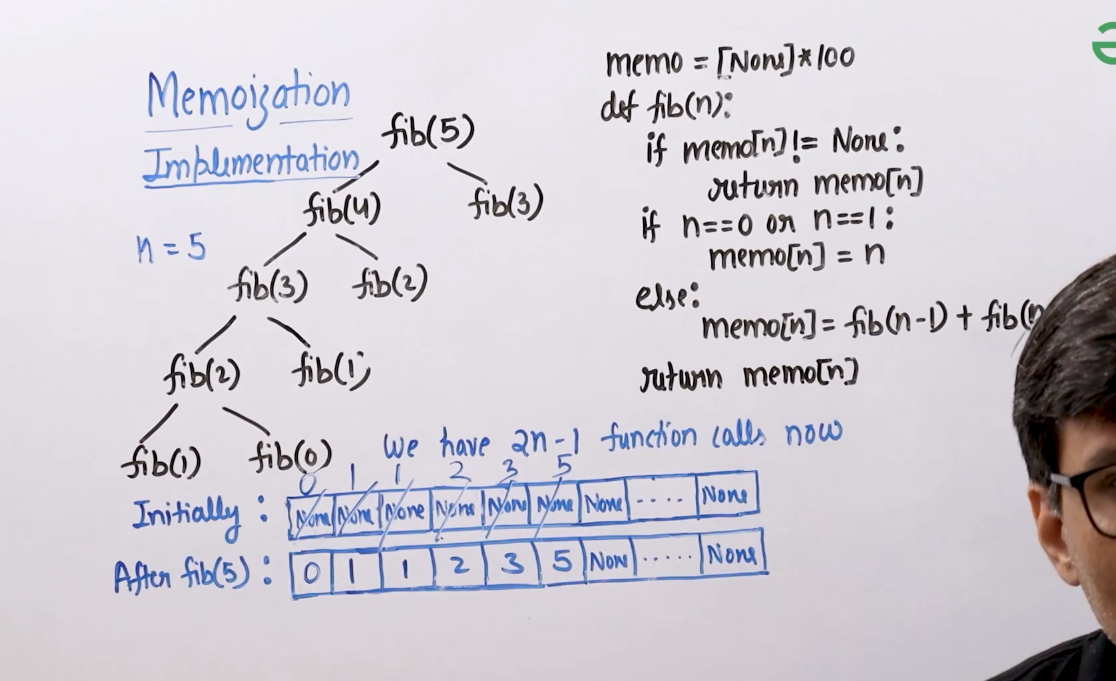 Memoization
Implementation
n = 5
fib(5)
fib(4) fib(3)
fib(3) fib(2)
fib(2) fib(1)
fib(1) fib(0)
memo = [None]*100
def fib(n):
if memo[n] != None:
return memo[n]
if n==0 or n==1:
memo[n] = n
else:
memo[n] = fib(n-1) + fib(
return memo[n]
We have 2n-1 function calls now
0 1 1 2 3 5
Initially: None None None None None None None ···· None
After fib(5): 0 1 1 2 3 5 None ····· None